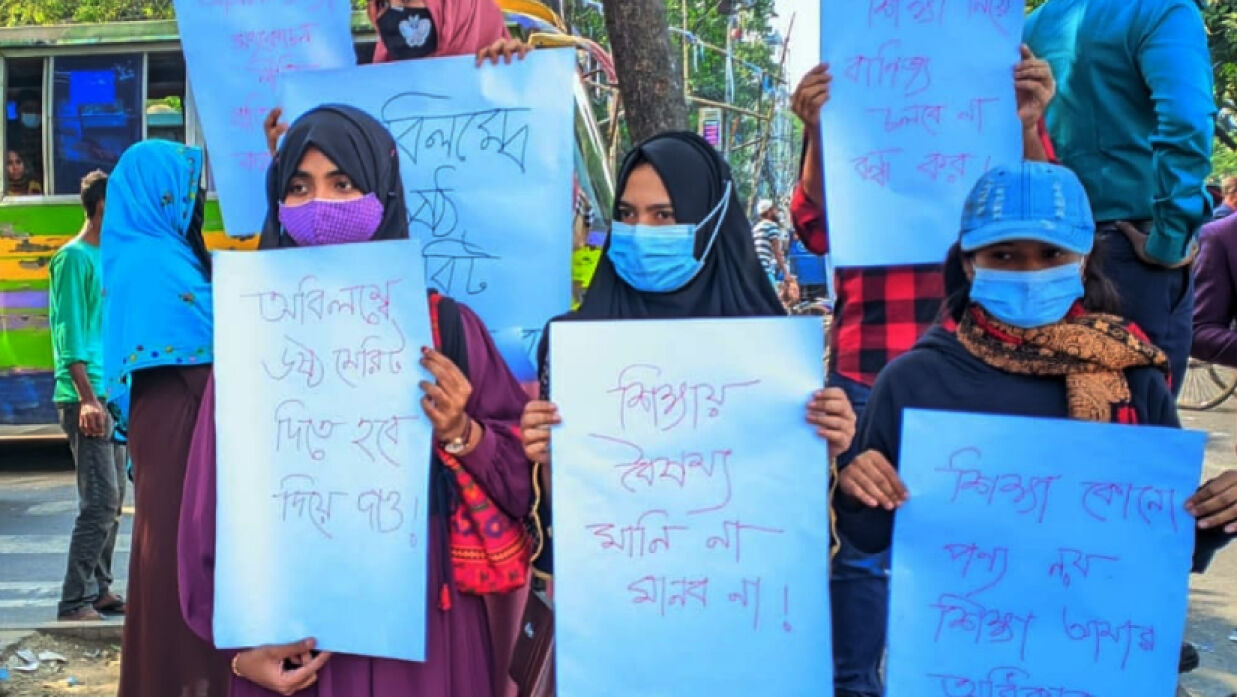 বিলম্বে
ষষ্ঠ
শিক্ষা নিয়ে
বানিজ্য
চলবে না
বন্ধ কর!
অবিলম্বে
৬ষ্ঠ মেরিট
দিতে হবে
দিয়ে দাও!
শিক্ষায়
বৈষম্য
মানি না
মানব না!
শিক্ষা কোনো
পণ্য নয়
শিক্ষা আমার
অধিকার